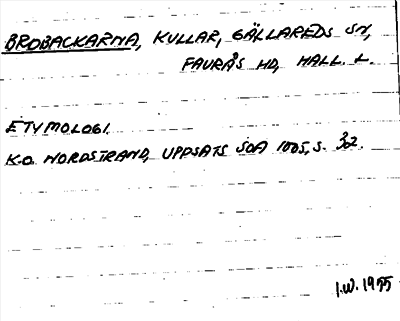 BROBACKARNA, KULLAR, GÄLLAREDS SN,
FAURÅS HD, HALL. L.
ETYMOLOGI.
K-O NORDSTRAND, UPPSATS SOA 1005, S. 302.
I.W. 1955